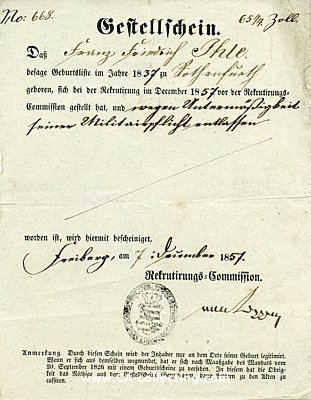 No: 668. 65¼ Zoll.
Gestellschein.
Daß Franz Friedrich Ihle
besage Geburtsliste im Jahre 1837 zu Rothenfurth
geboren, sich bei der Rekrutirung im December 1857 vor der Rekrutirungs-
Commission gestellt hat, und wegen Untermäßigkeit
seiner Militairpflicht entlassen
worden ist, wird hiermit bescheiniget.
Freiberg, am 7. December 1857.
Rekrutirungs-Commission.
Anmerkung. Durch diesen Schein wird der Inhaber nur an dem Orte seiner Geburt legitimirt.
Wenn er sich aus demselben wegwendet, so hat er sich nach Maaßgabe des Mandats vom
20. September 1826 mit einem Geburtsscheine zu versehen. In diesem hat die Obrigkeit
das Nöthige aus der Gestellscheine zu den Acten zu
cassiren.